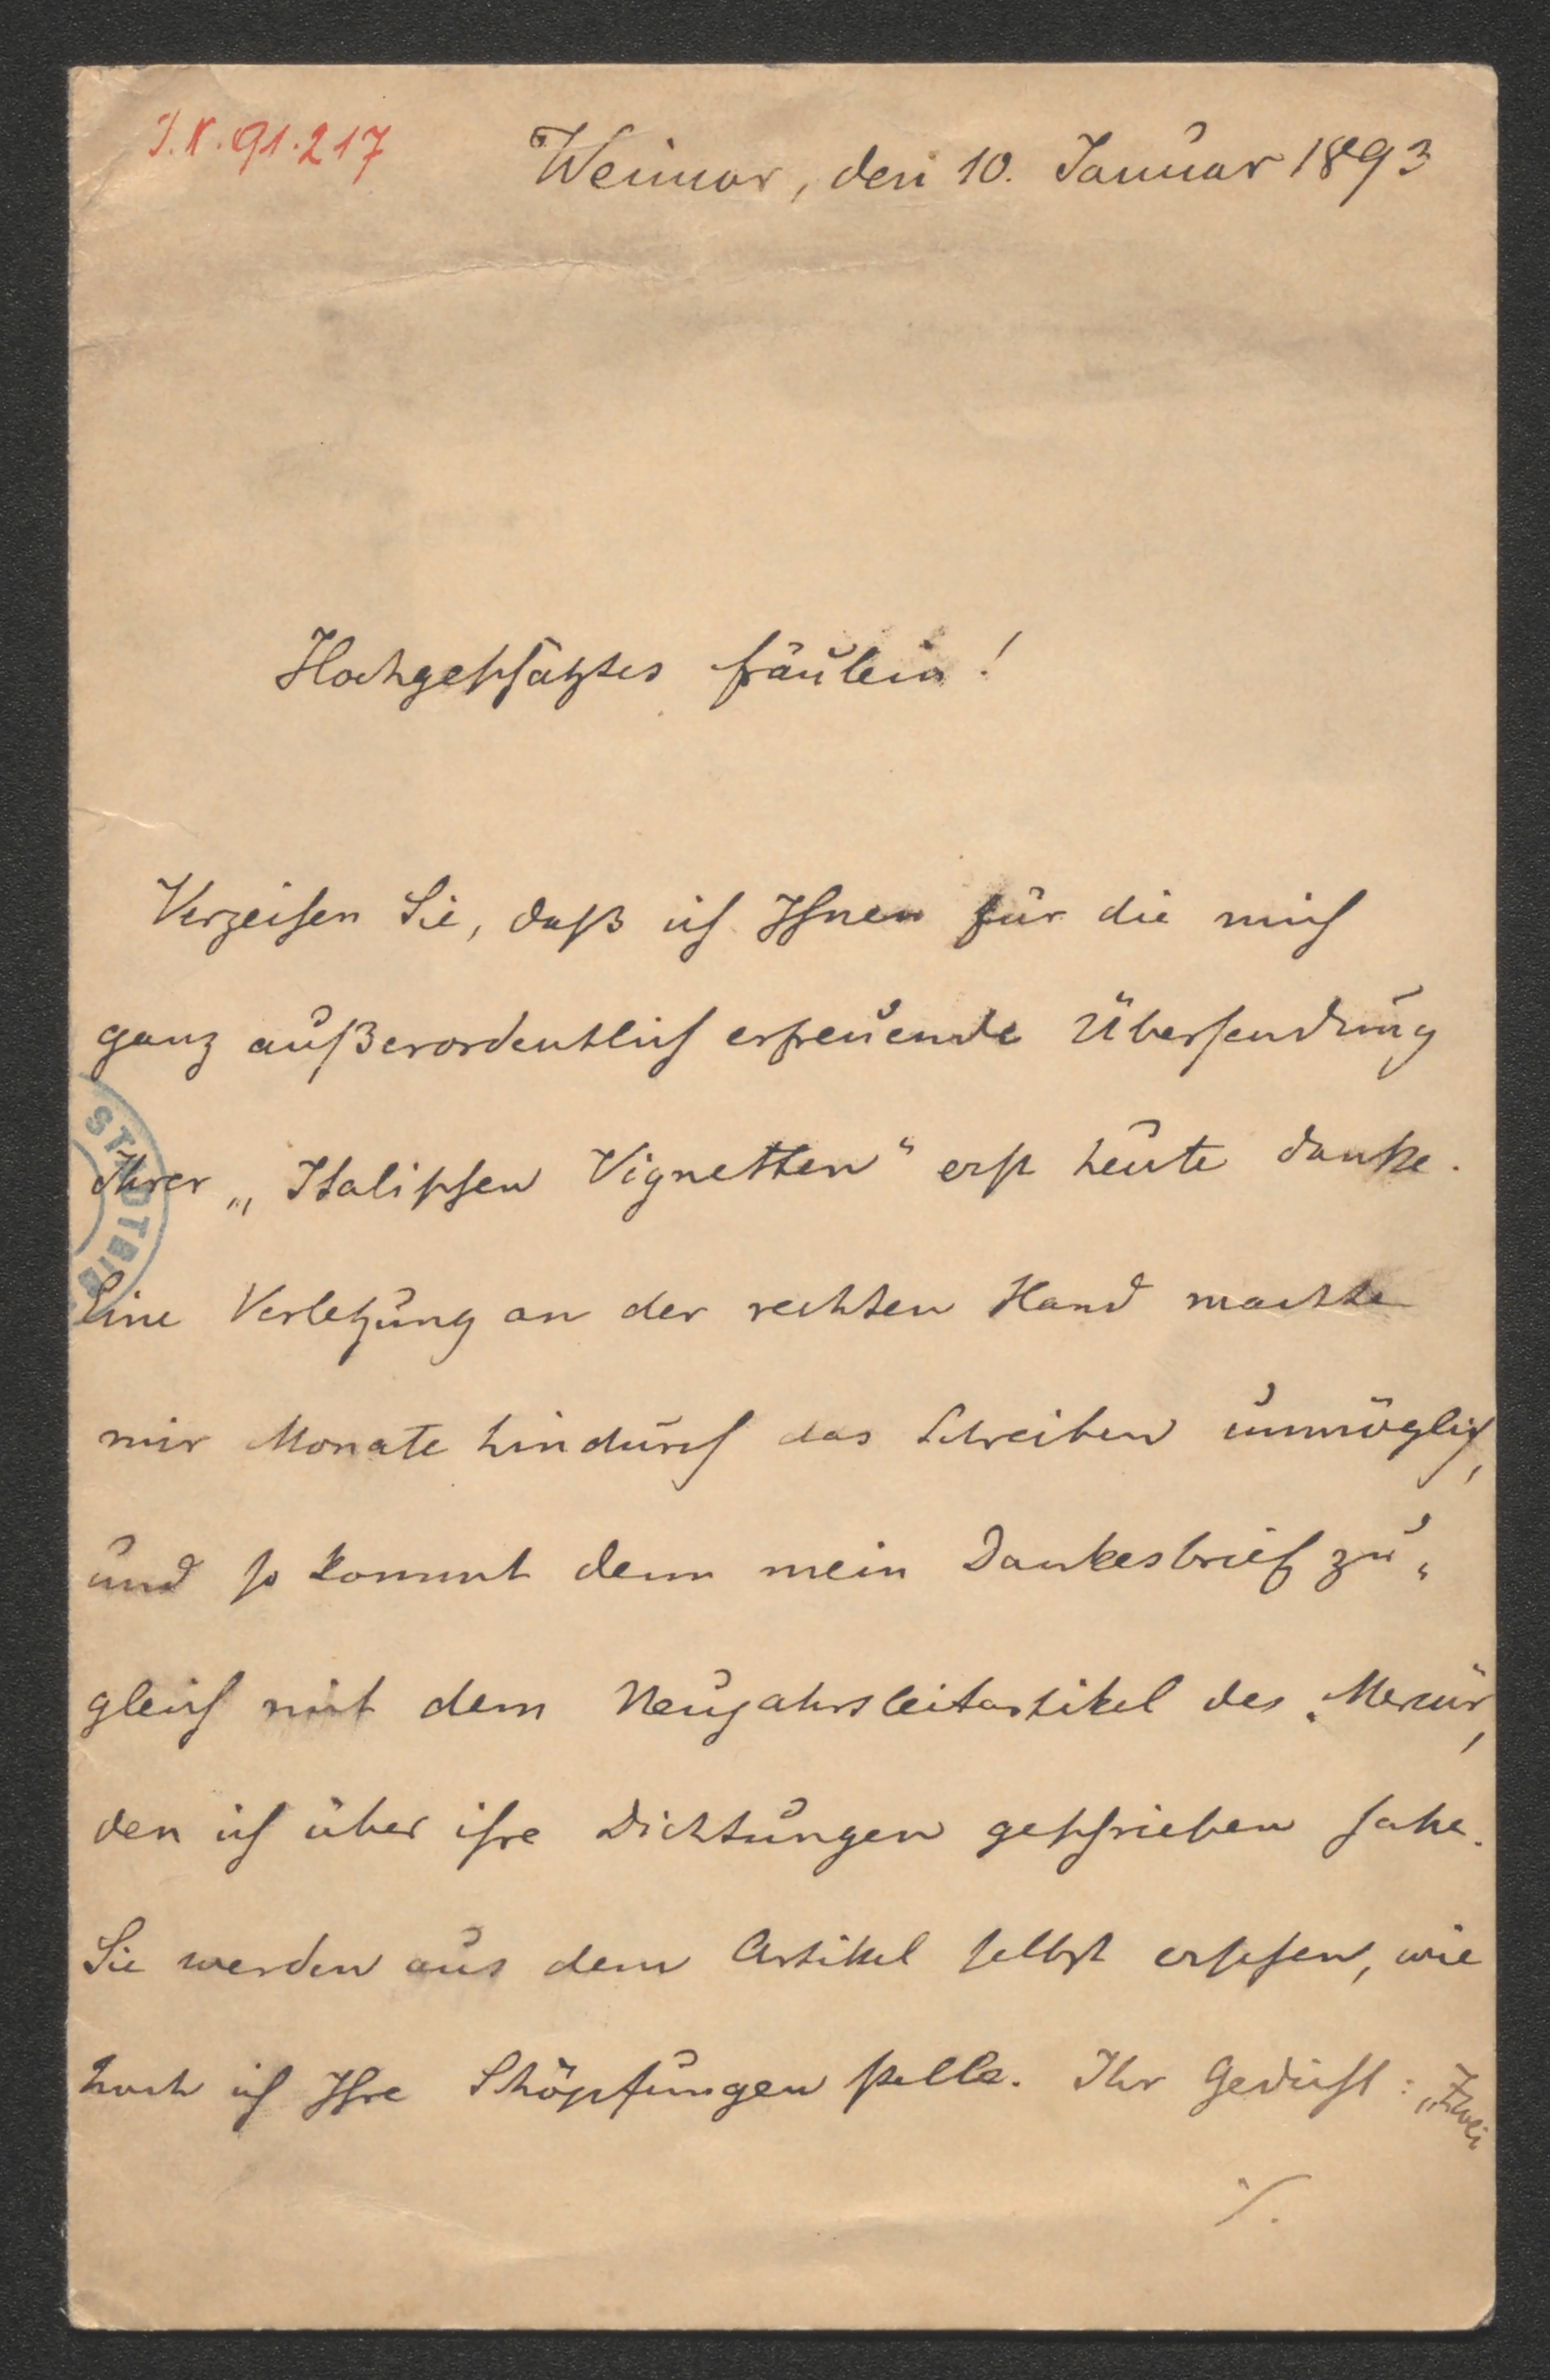 I.N. 91.217
Weimar, den 10. Januar 1893
Hochgeschätztes Fräulein!
Verzeihen Sie, daß ich Ihnen für die mich
ganz außerordentlich erfreuende Übersendung
Ihrer „Italischen Vignetten“ erst heute danke.
Eine Verletzung an der rechten Hand machte
mir Monate hindurch das Schreiben unmöglich,
und so kommt denn mein Dankesbrief zu-
gleich mit dem Neujahrsleitartikel des „Mercur,
den ich über ihre Dichtungen geschrieben habe.
Sie werden aus dem Artikel selbst ersehen, wie
hoch ich Ihre Schöpfungen stelle. Ihr Gedicht: „Zwei
./.
STADTBIB